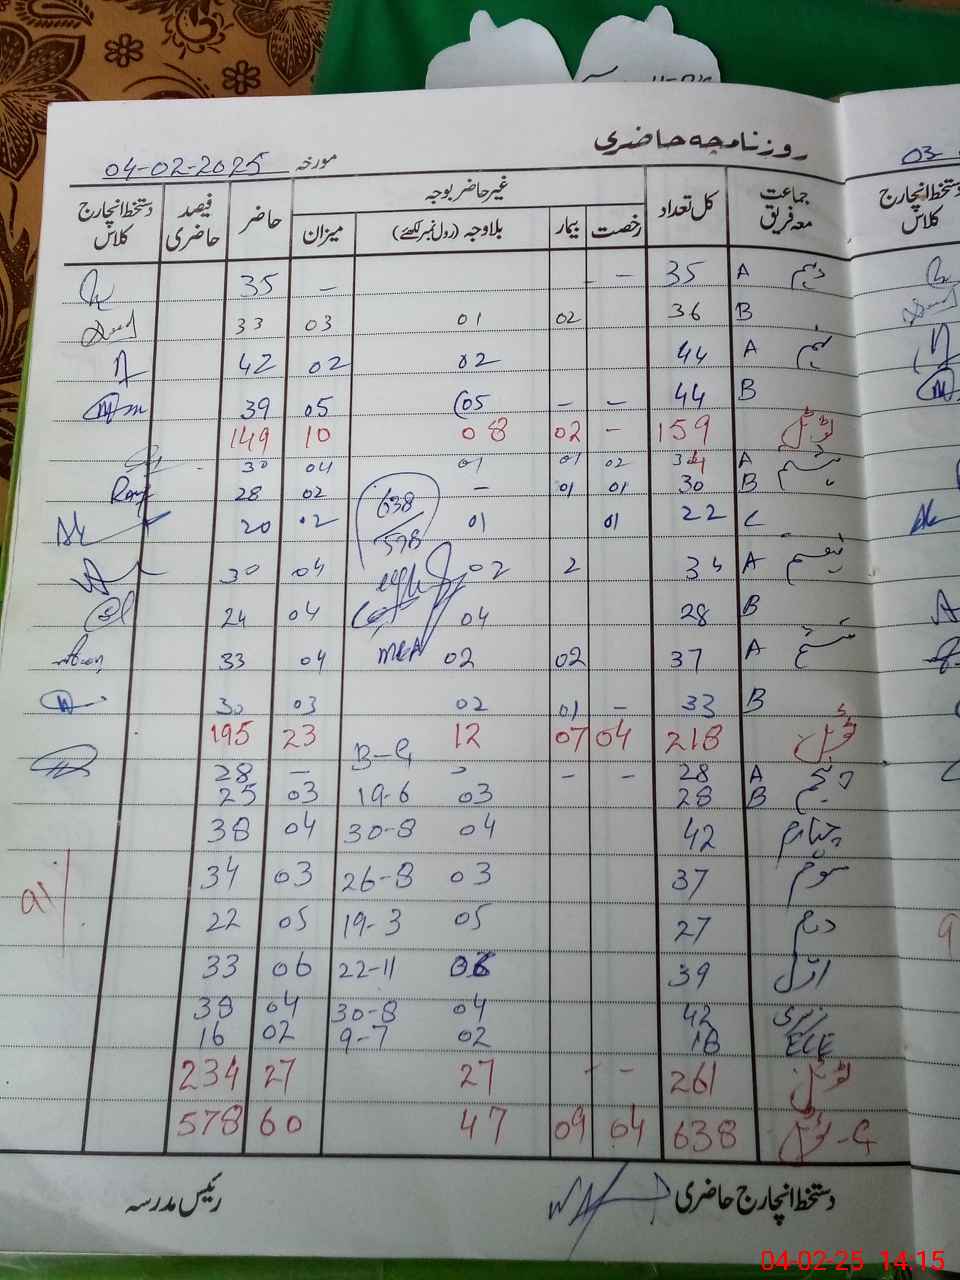 روزنامچہ حاضری
مورخہ 04-02-2025
جماعت معہ فریق | کل تعداد | غیر حاضر بوجہ | حاضر | فیصد حاضری | دستخط انچارج کلاس
رخصت | بیمار | بلاوجہ (رول نمبر لکھئے) | میزان
دہم A 35 – – 35
B 36 02 01 03 33
نہم A 44 02 02 42
B 44 – – 05 05 39
ٹوٹل 159 – 02 08 10 149
ہشتم A 34 02 01 01 04 30
B 30 01 01 – 02 28
C 22 01 01 02 20
638
578
ہفتم A 34 2 02 04 30
B 28 04 04 24
MEA
ششم A 37 02 02 04 33
B 33 – 01 02 03 30
ٹوٹل 218 04 07 12 23 195
B-G
پنجم A 28 – – – 28
B 28 03 19-6 03 25
چہارم 42 04 30-8 04 38
سوئم 37 03 26-8 03 34
91%
دوم 27 05 19-3 05 22
اوّل 39 06 22-11 06 33
نرسری 42 04 30-8 04 38
ECE 18 02 9-7 02 16
ٹوٹل 261 – – 27 27 234
G-ٹوٹل 638 04 09 47 60 578
دستخط انچارج حاضری
رئیس مدرسہ
03
دستخط انچارج کلاس
9
04-02-25 14:15